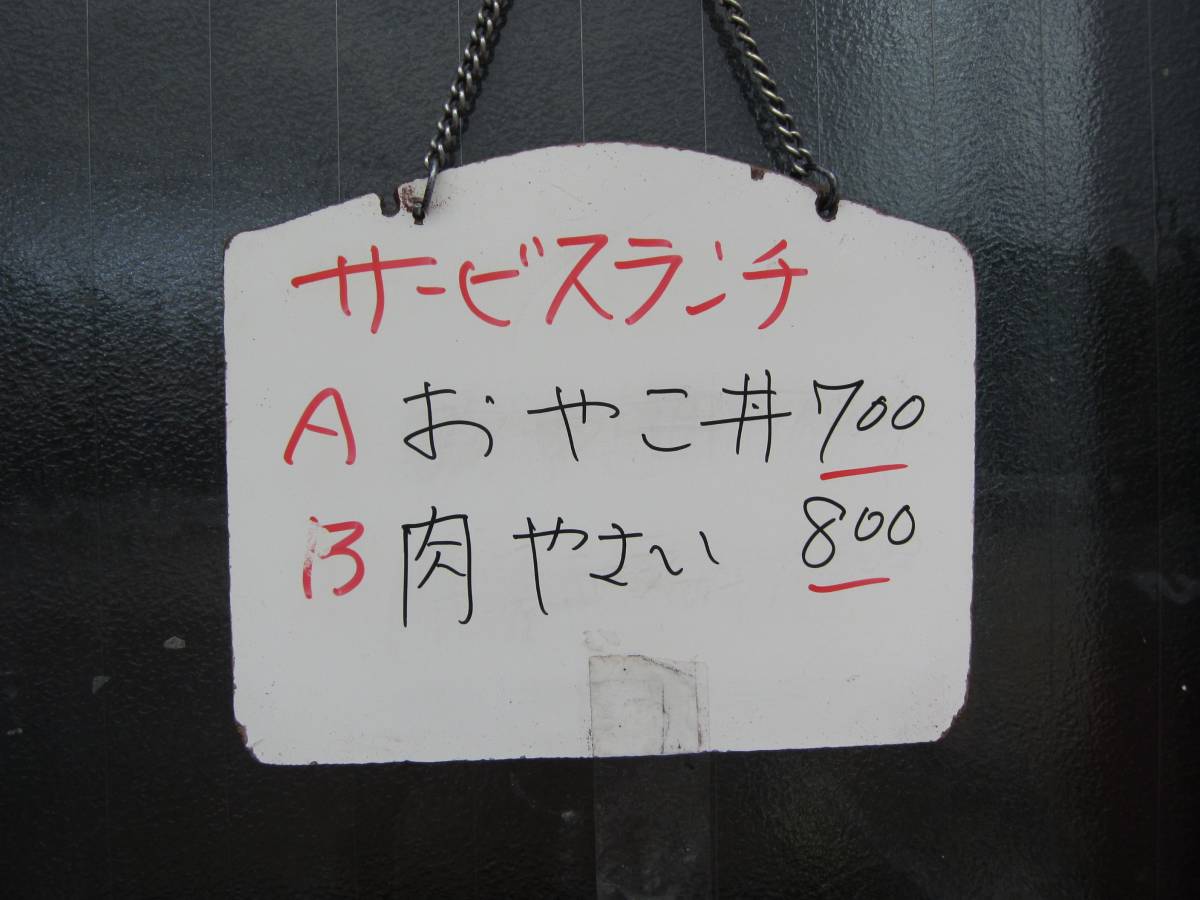 サービスランチ
A おやこ丼 700
B 肉やさい 800